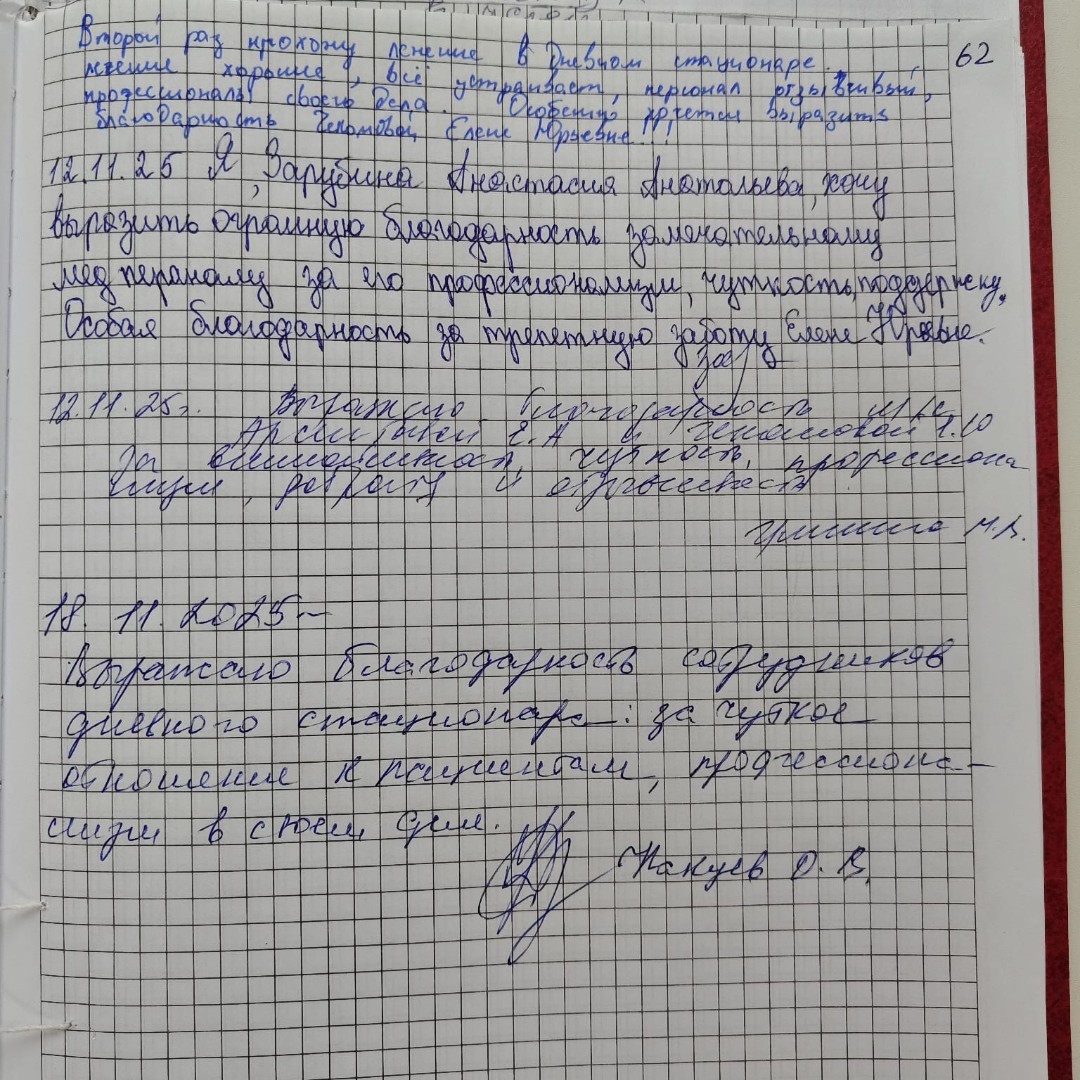 62
Второй раз прохожу лечение в Дневном стационаре.
лечение хорошие, всё устраивает, персонал отзывчивый,
профессионалы своего дела. Особенно хочется выразить
благодарность Чекомовой Елене Юрьевне!!!
12.11.25 Я, Зарубина Анастасия Анатольева, хочу
выразить огромную благодарность замечательному
мед пероналу за его профессионализм, чуткость, поддержку.
Особая благодарность за трепетную заботу Елене Юрьевне.
12.11.25г. Выражаю благодарность м/с
Е.А и Чекомовой Е.Ю
За внимательность, чуткость, профессиона
лизм, доброту и отзывчивость
Гришина М.В.
18.11.2025
Выражаю благодарность сотрудников
дневного стационара: за чуткое
отношение к пациентам, профессиона-
лизм в своем деле.
О.В.